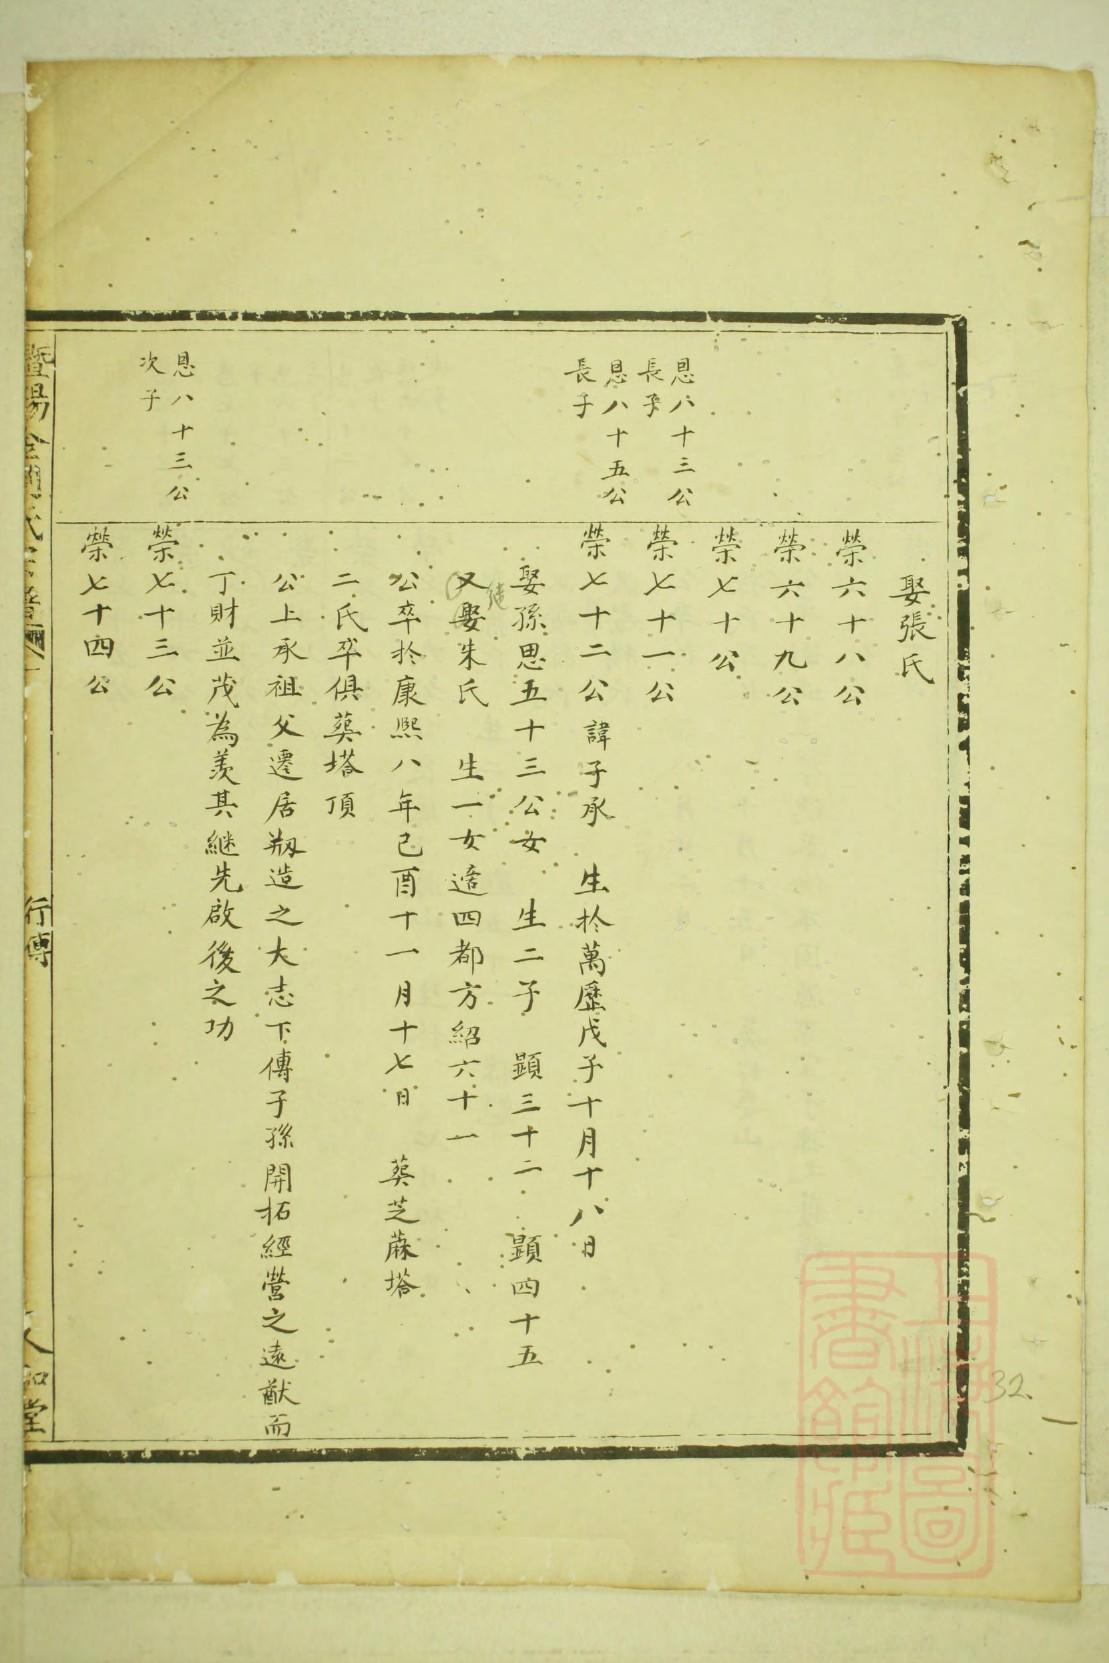 娶張氏
榮六十八公
榮六十九公
榮七十公
恩八十三公
長子
榮七十一公
恩八十五公
長子
榮七十二公諱子承 生於萬歷戊子十月十八日
娶孫思五十三公女 生二子 顯三十二 顯四十五
又娶朱氏 生一女適四都方紹六十一
公卒於康熙八年己酉十一月十七日 葬芝蔴塔
二氏卒俱葬塔頂
公上承祖父遷居剏造之大志下傳子孫開拓經營之遠猷而
丁財並茂為羨其繼先啟後之功
恩八十三公
次子
榮七十三公
榮七十四公
暨陽
行傳
人和堂
32
上海圖
書館藏